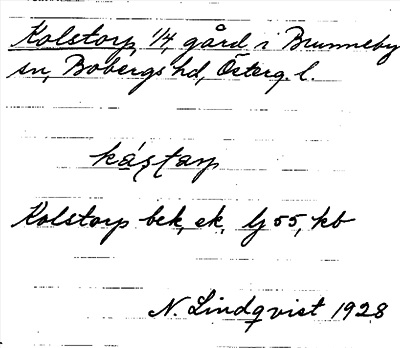 Kolstorp, 1/4, gård i Brunneby
sn, Bobergs hd, Österg. l.
kǻʂʈarp
Kolstorp bek, ek, lj 55, kb
N. Lindqvist 1928